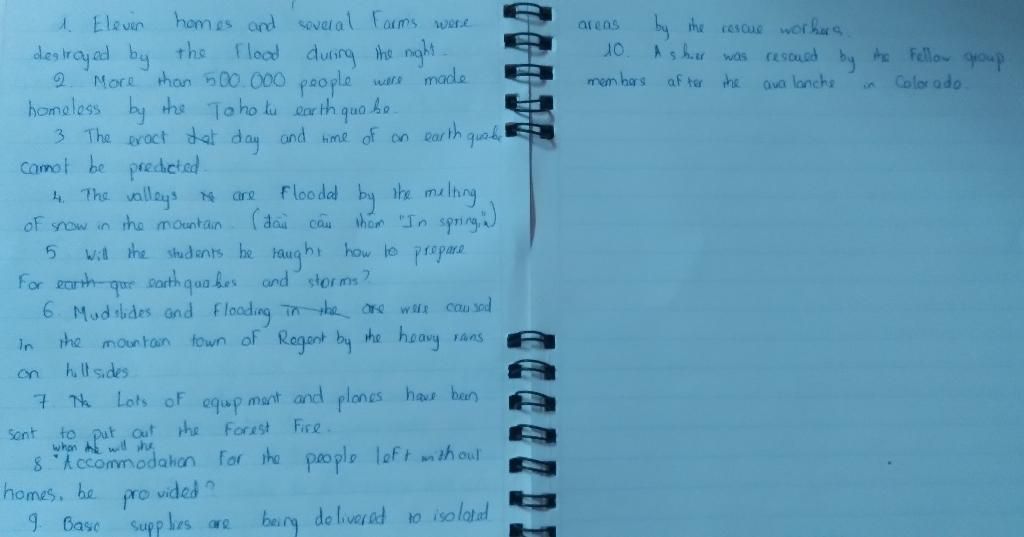 1. Eleven homes and several Farms were
destroyed by the Flood during the night.
2. More than 500.000 people were made
homeless by the Tohoku earthquake.
3 The exact day and time of an earthquake
cannot be predicted.
4. The valleys are Flooded by the melting
of snow in the mountain. (đầu câu thêm "In spring,")
5 Will the students be taught how to prepare
For earthquakes and storms?
6. Mudslides and Flooding were caused
in the mountain town of Regent by the heavy rans
on hillsides
7. Lots of equipment and planes have been
sent to put out the Forest Fire.
when will the
8 Accommodation For the people left without
homes, be provided?
9. Basic supplies are being delivered to isolated
areas by the rescue workers.
10. Asher was rescued by the Fellow group
members after the avalanche in Colorado.